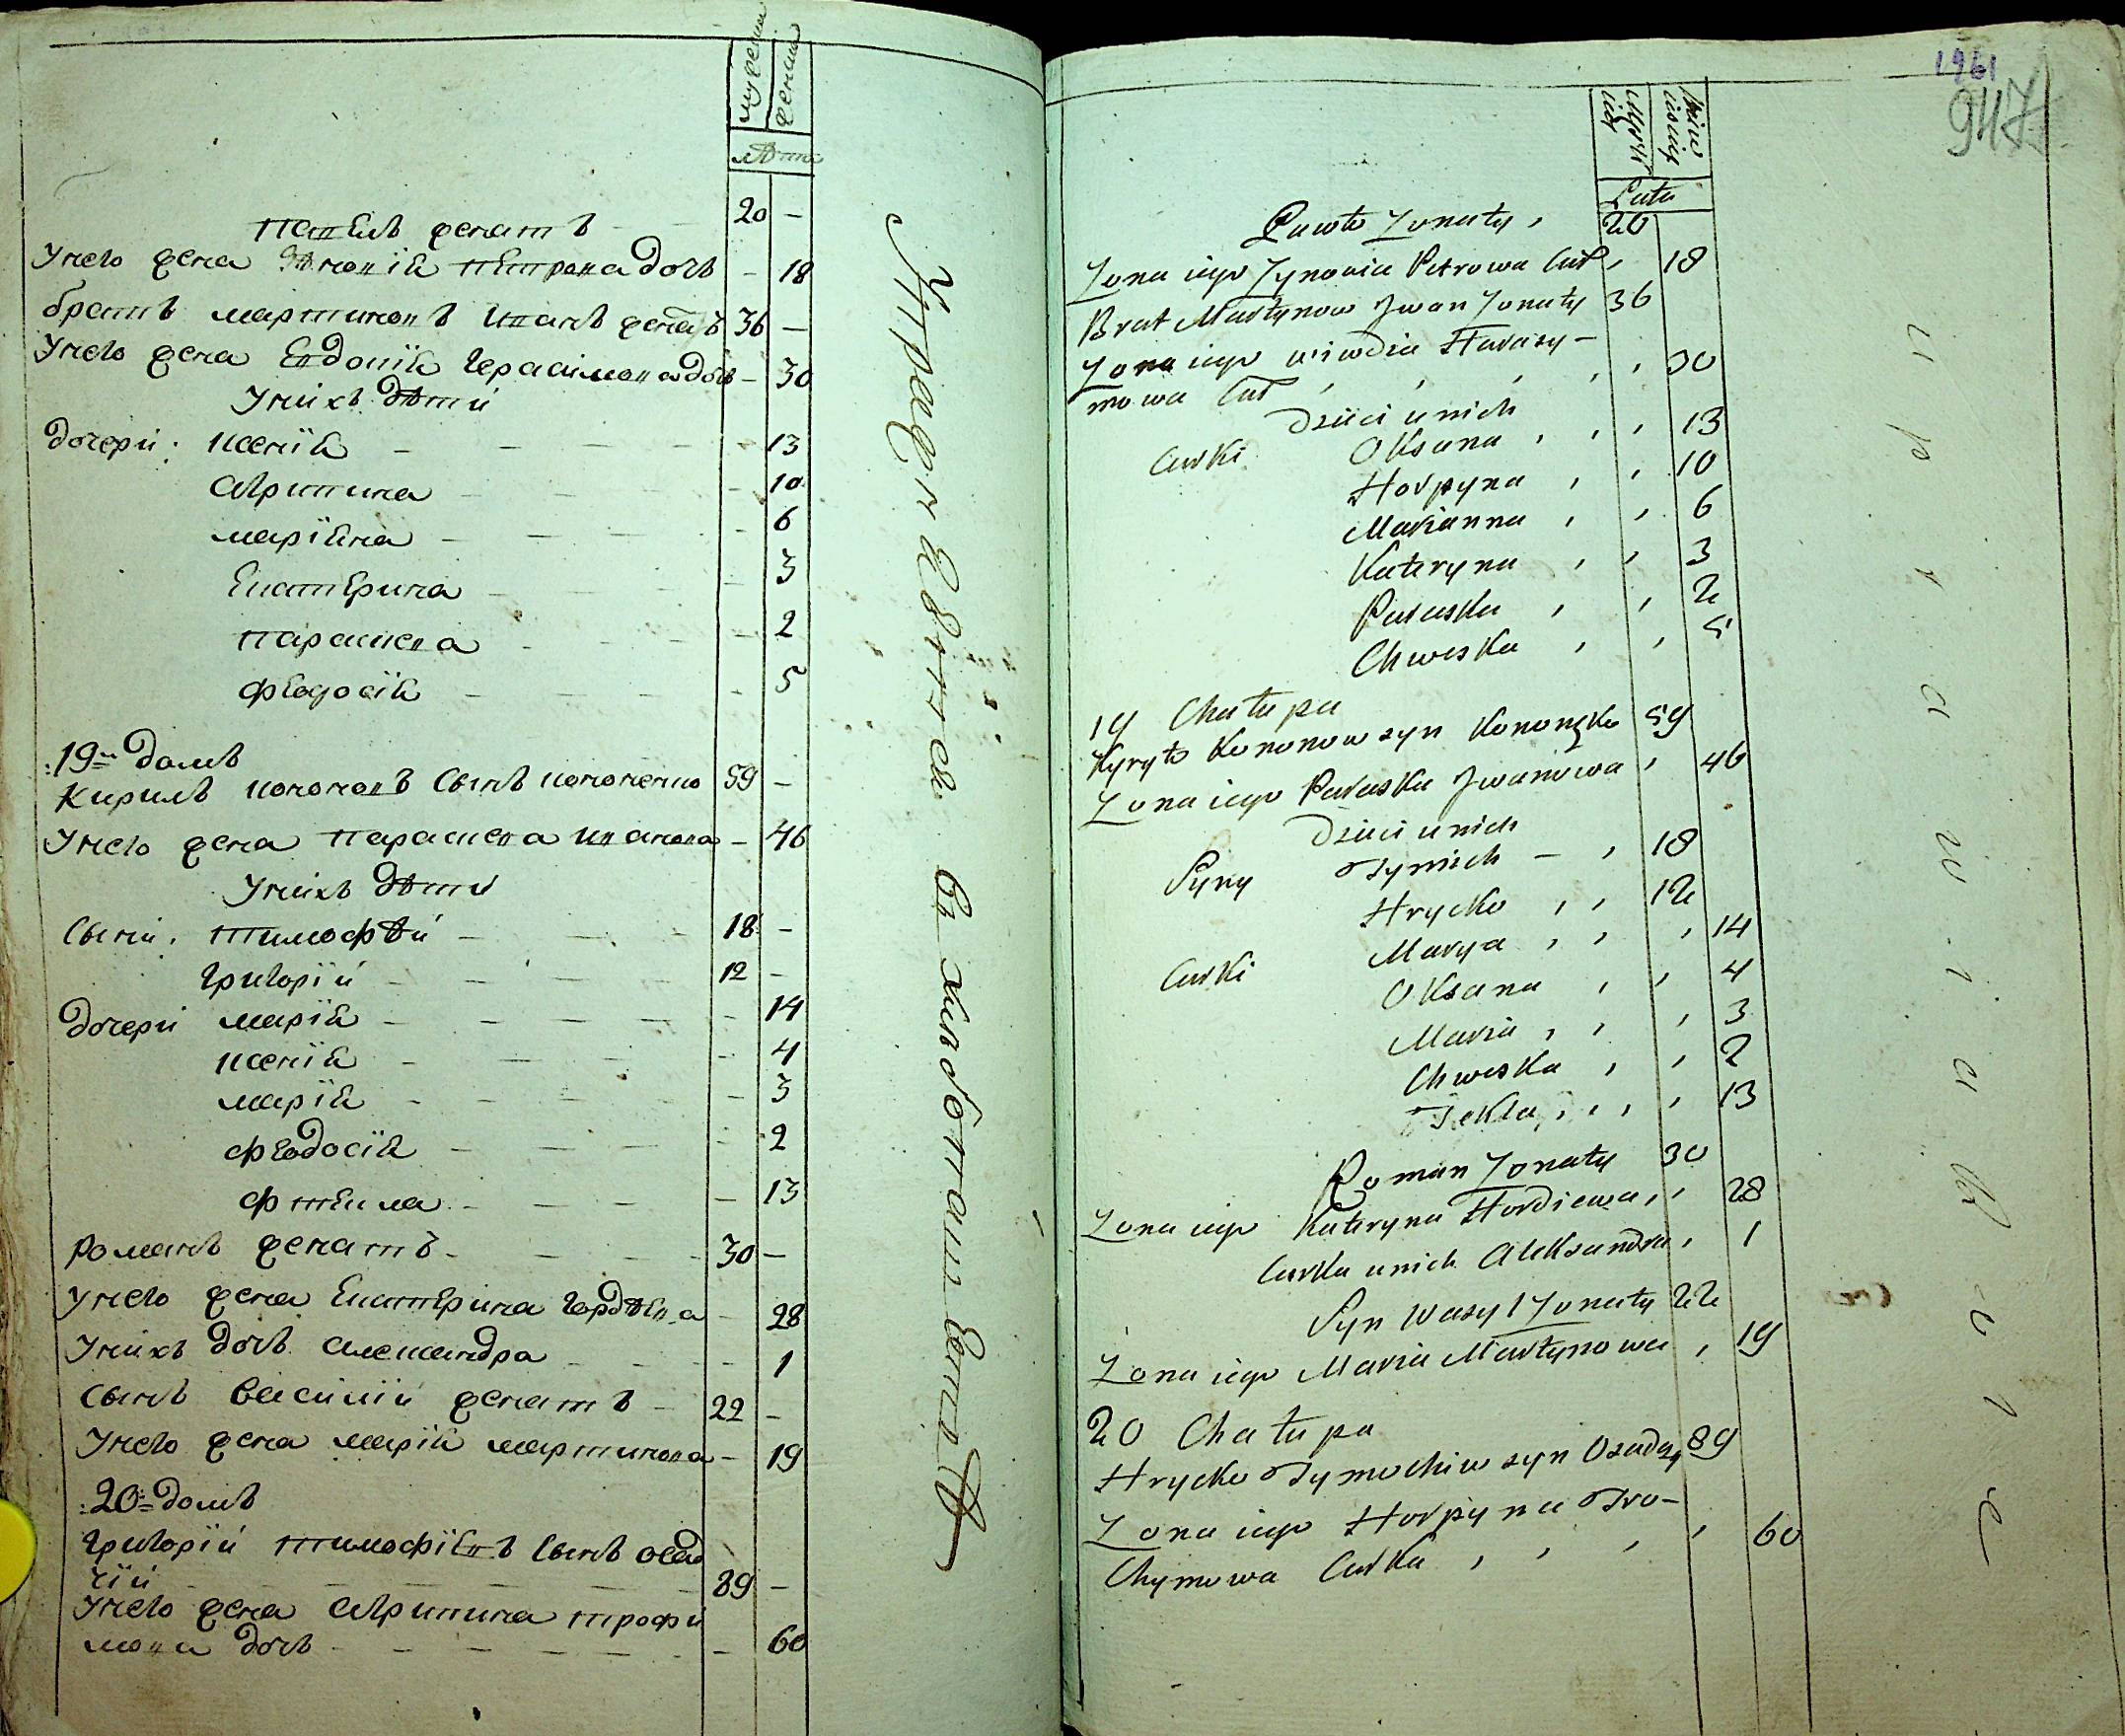 мужеска
женска
лѣта
Павелъ женатъ 20 -
Унего жена Зѣновія Петрова дочь - 18
братъ мартиновъ Иванъ женатъ 36 -
Унего жена Евдокія Герасимова дочь - 30
Унихъ дѣти
дочери: ксенія - 13
Агрипина - 10
маріяна - 6
Екатерина - 3
параскева - 2
Феодосія - 5
:19й домъ
Кирилъ кононовъ Сынъ кононенко 59 -
Унего жена параскева иванова - 46
Унихъ дѣти
Сыни: тимофѣй 18 -
григорій 12 -
дочери марія - 14
ксенія - 4
марія - 3
феодосія - 2
фтекла - 13
Романъ женатъ 30 -
Унего жена Екатерина гордѣева - 28
Унихъ дочь Александра - 1
Сынъ Василій женатъ 22 -
Унего жена марія мартинова - 19
:20й домъ
григорій тимофіевъ Сынъ осад
чій 89 -
Унего жена Агрипина трофи
мова дочь - 60
въ хлѣбопашествѣ
1961
947
Lata
Pawło Zonaty, 20
Zona iego Zynowia Petrowa Cur, 18
Brat Martynow Jwan Zonaty 36
Zona iego Wiwdia Harasy-
mowa Cur , , , , , 30
Dzieci unich
Curki Oksana , , , 13
Horpyna , , 10
Marianna , , 6
Kateryna , , 3
Paraska , , 2
Chweska , , 5
19 Chałupa
Kyryło Kononow syn Kononęko 59
Zona iego Paraska Jwanowa , 46
Dzieci unich
Syny Tymich - , 18
Hrycko , , 12
Curki Marya , , , 14
Oksana , , 4
Maria , , , 3
Chweska , , 2
Tekla , , , , 13
Roman Zonaty 30
Zona iego Kateryna Hordiewa , , 28
Curka unich Aleksandra , 1
Syn Wasyl Zonaty 22
Zona iego Maria Martynowa , 19
20 Chałupa
Hrycko Tymochiw syn Osadzy 89
Zona iego Horpyna Tro-
Chymowa Curka , , , , 60